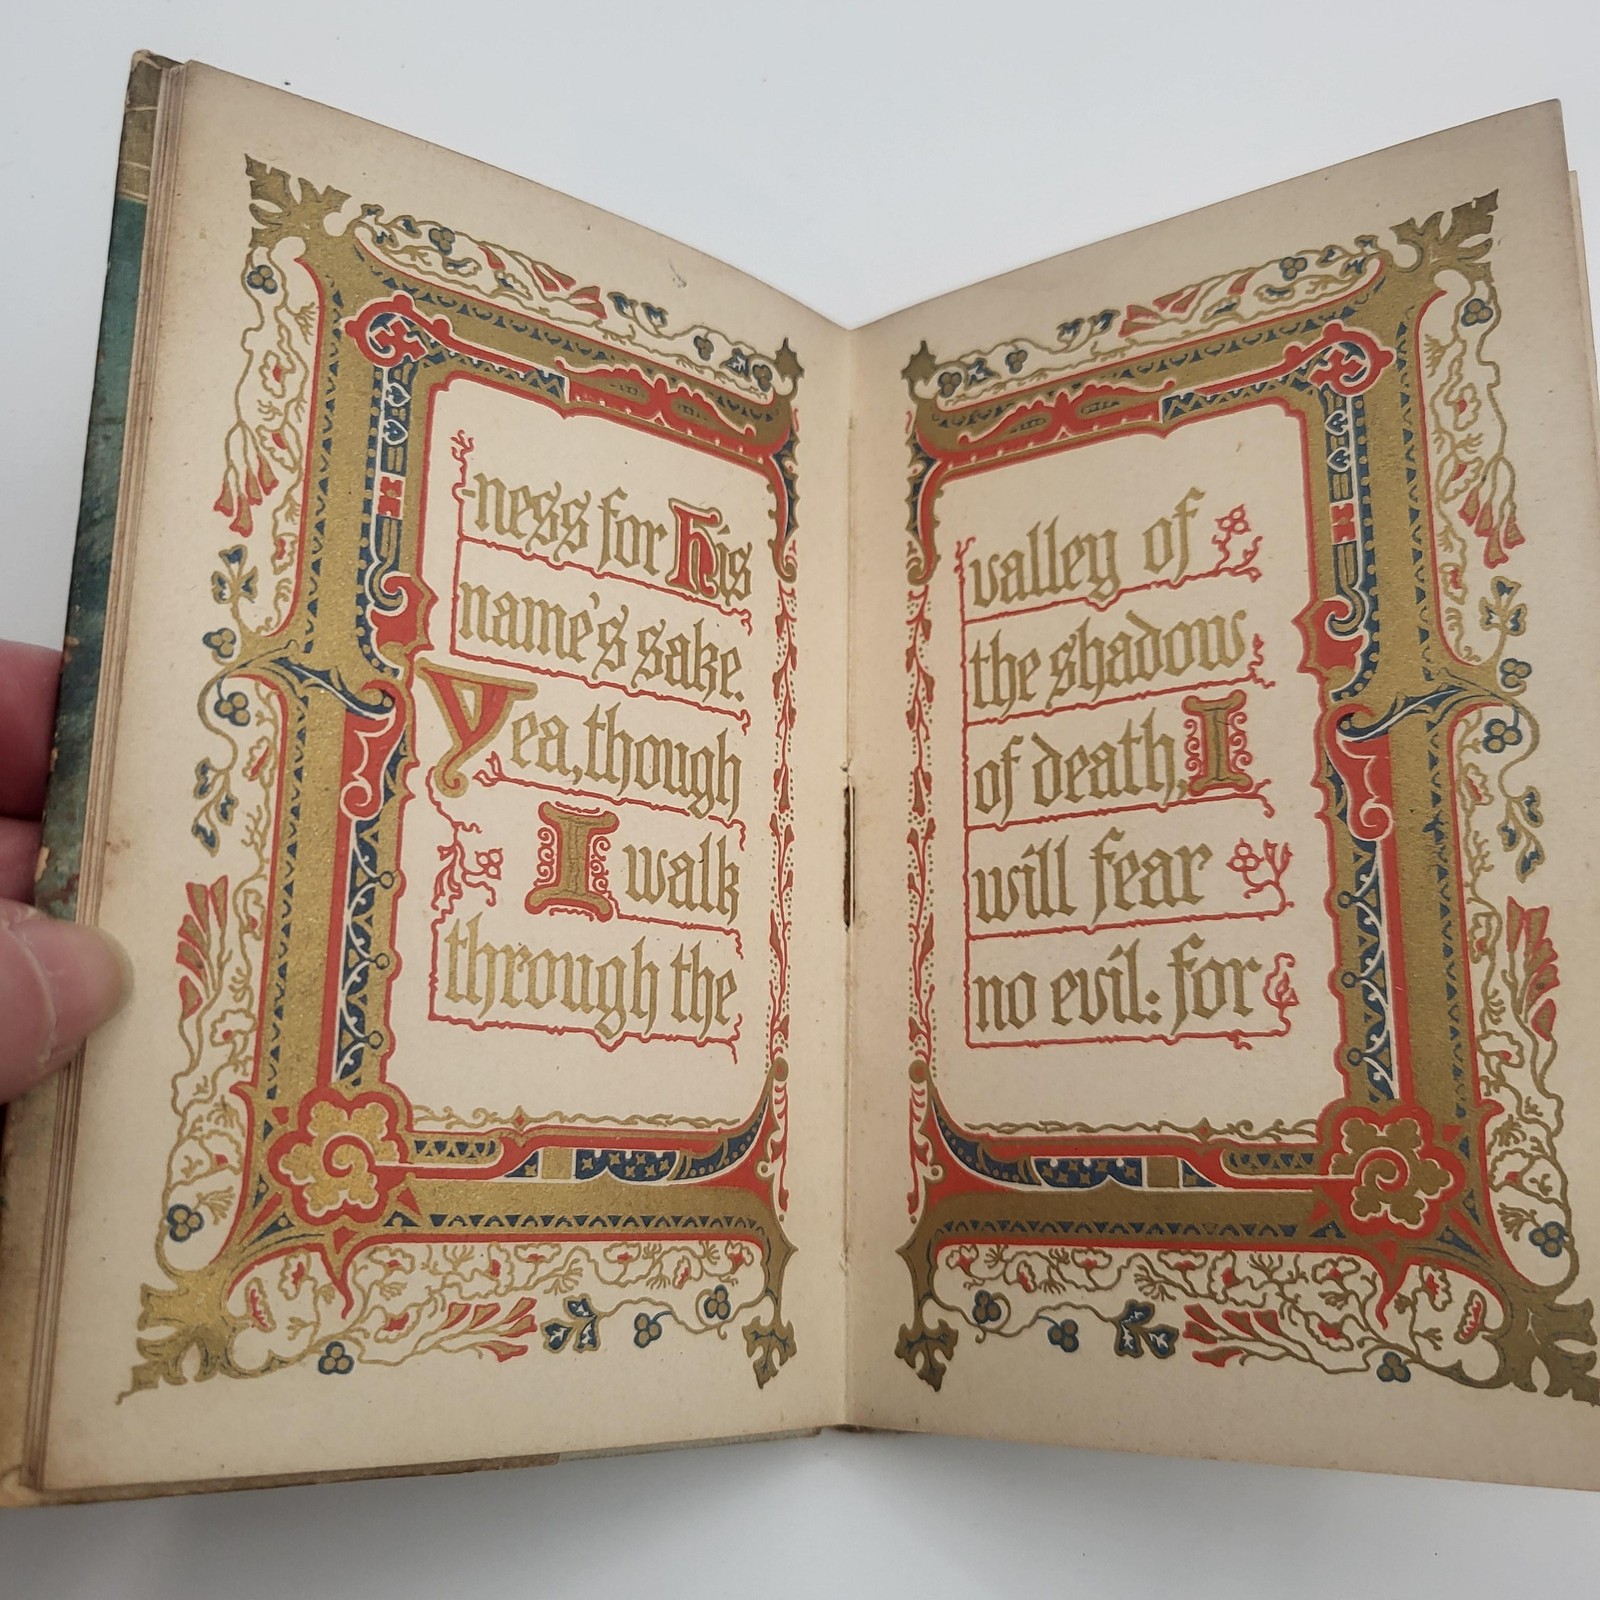 -ness for his
name's sake.
Yea, though
I walk
through the
valley of
the shadow
of death, I
will fear
no evil: for